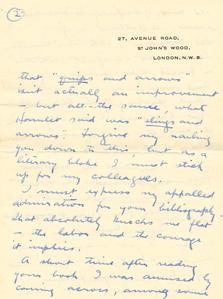 2
27, AVENUE ROAD,
ST JOHN'S WOOD,
LONDON, N.W. 8.
that "quips and arrows"
isn't actually an improvement
– but all the same, what
Hamlet said was "slings and
arrows". Forgive my nailing
you down to this, but as a
literary bloke I must stick
up for my colleagues.
I must express my appalled
admiration for your bibliography –
that absolutely knocks me flat
– the labor and the courage
it implies.
A short time after reading
your book I was amused by
coming across, among some